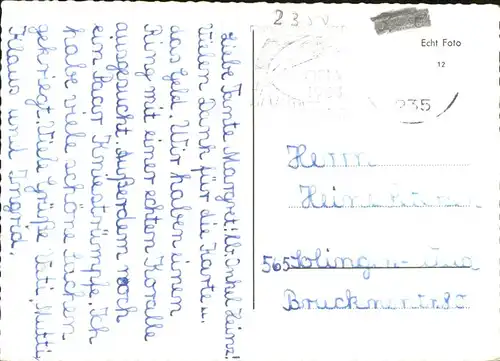 Liebe Tante Margret! U. Onkel Heinz!
Vielen Dank für die Karte u.
das Geld. Wir haben einen
Ring mit einer echten Koralle
ausgesucht. Außerdem noch
ein Paar Kniestrümpfe. Ich
habe viele schöne Sachen
gekriegt. Viele Grüße Vati, Mutti,
Klaus und Ingrid.
Echt Foto
12
235
Herrn
565 Solingen
Brucknerstr.